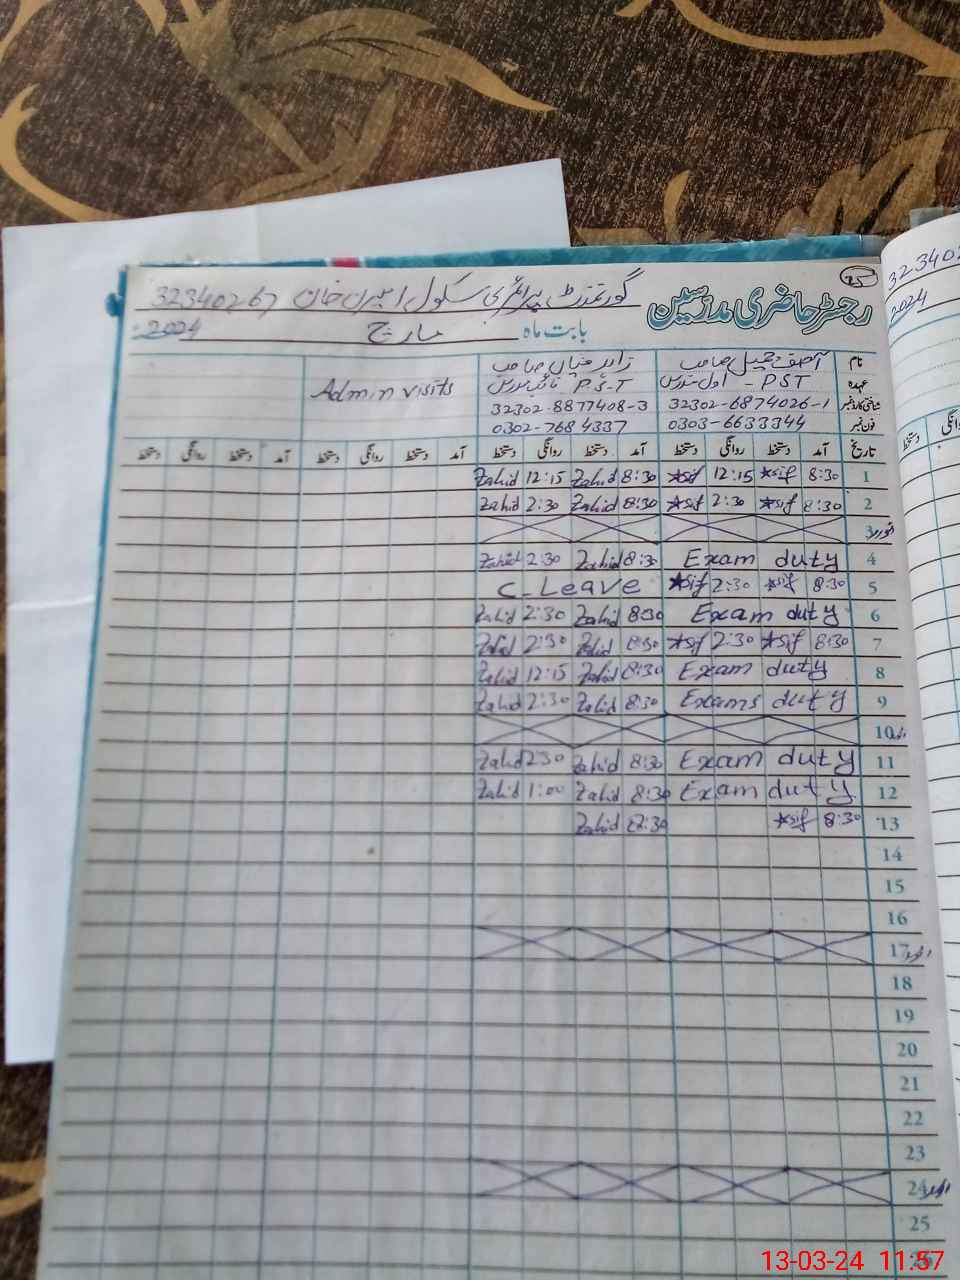 25
رجسٹر حاضری مدرسین گورنمنٹ پرائمری سکول امیرن خان 32340267
بابت ماہ مارچ 2024
نام آصف جمیل صاحب زاہد صاحب
عہدہ اول مدرس - PST نائب مدرس P.S.T Admin visits
شناختی کارڈ نمبر 32302-6874026-1 32302-8877408-3
فون نمبر 0303-6633344 0302-7684337
تاریخ آمد دستخط روانگی دستخط آمد دستخط روانگی دستخط آمد دستخط روانگی دستخط آمد دستخط روانگی دستخط
1 8:30 Asif 12:15 Asif 8:30 Zahid 12:15 Zahid
2 8:30 Asif 2:30 Asif 8:30 Zahid 2:30 Zahid
3 اتوار
4 Exam duty 8:30 Zahid 2:30 Zahid
5 8:30 Asif 2:30 Asif C-Leave
6 Exam duty 8:30 Zahid 2:30 Zahid
7 8:30 Asif 2:30 Asif 8:30 Zahid 2:30 Zahid
8 Exam duty 8:30 Zahid 12:15 Zahid
9 Exams duty 8:30 Zahid 2:30 Zahid
10
11 Exam duty 8:30 Zahid 2:30 Zahid
12 Exam duty 8:30 Zahid 1:00 Zahid
13 8:30 Asif 8:30 Zahid
14
15
16
17 اتوار
18
19
20
21
22
23
24 اتوار
25
26
323402
2024
دستخط
13-03-24 11:57